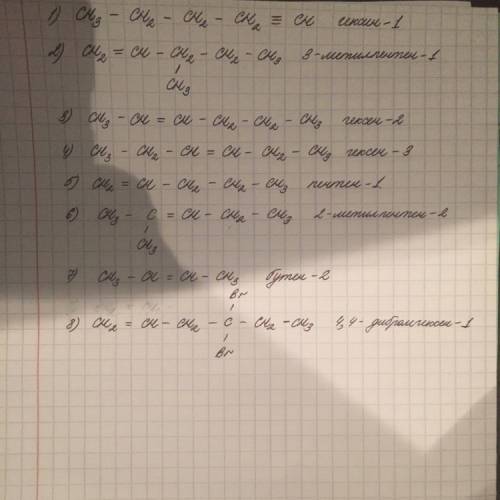 1) CH₃ – CH₂ – CH₂ – CH₂ ≡ CH гексин-1
2) CH₂ = CH – CH₂ – CH₂ – CH₃ 3-метилпентен-1
CH₃
3) CH₃ – CH = CH – CH₂ – CH₂ – CH₃ гексен-2
4) CH₃ – CH₂ – CH = CH – CH₂ – CH₃ гексен-3
5) CH₂ = CH – CH₂ – CH₂ – CH₃ пентен-1
6) CH₃ – C = CH – CH₂ – CH₃ 2-метилпентен-2
CH₃
7) CH₃ – CH = CH – CH₃ бутен-2
Br
8) CH₂ = CH – CH₂ – C – CH₂ – CH₃ 4,4-дибромгексен-1
Br